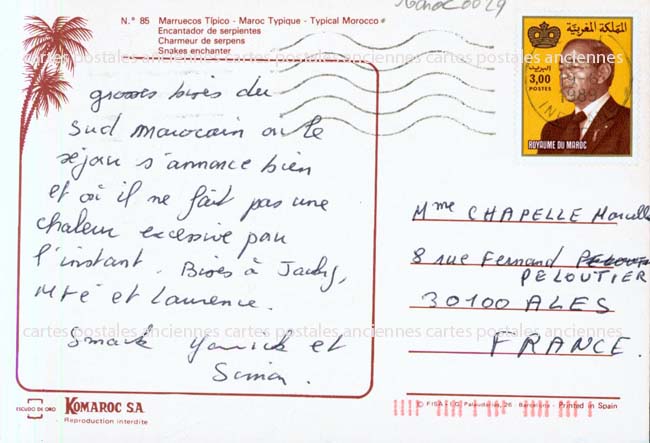 N.° 85 Marruecos Típico - Maroc Typique - Typical Morocco
Encantador de serpientes
Charmeur de serpens
Snakes enchanter
Maroc0029
المملكة المغربية
البريد
3,00
POSTES
1989
ROYAUME DU MAROC
cartes postales anciennes cartes postales anciennes cartes postales anciennes
grosses bises du
Sud marocain où le
séjour s'annonce bien
et où il ne fait pas une
chaleur excessive pour
l'instant. Bises à Jacky,
et Laurence.
Smack Yannick et
Simon.
Mme CHAPELLE Marcelle
8 rue Fernand
PELOUTIER
30100 ALES
FRANCE.
cartes postales anciennes cartes postales anciennes cartes postales anciennes
ESCUDO DE ORO
KOMAROC S.A.
Reproduction interdite
© FISA - I.G. Palaudarias, 26 Barcelona - Printed in Spain